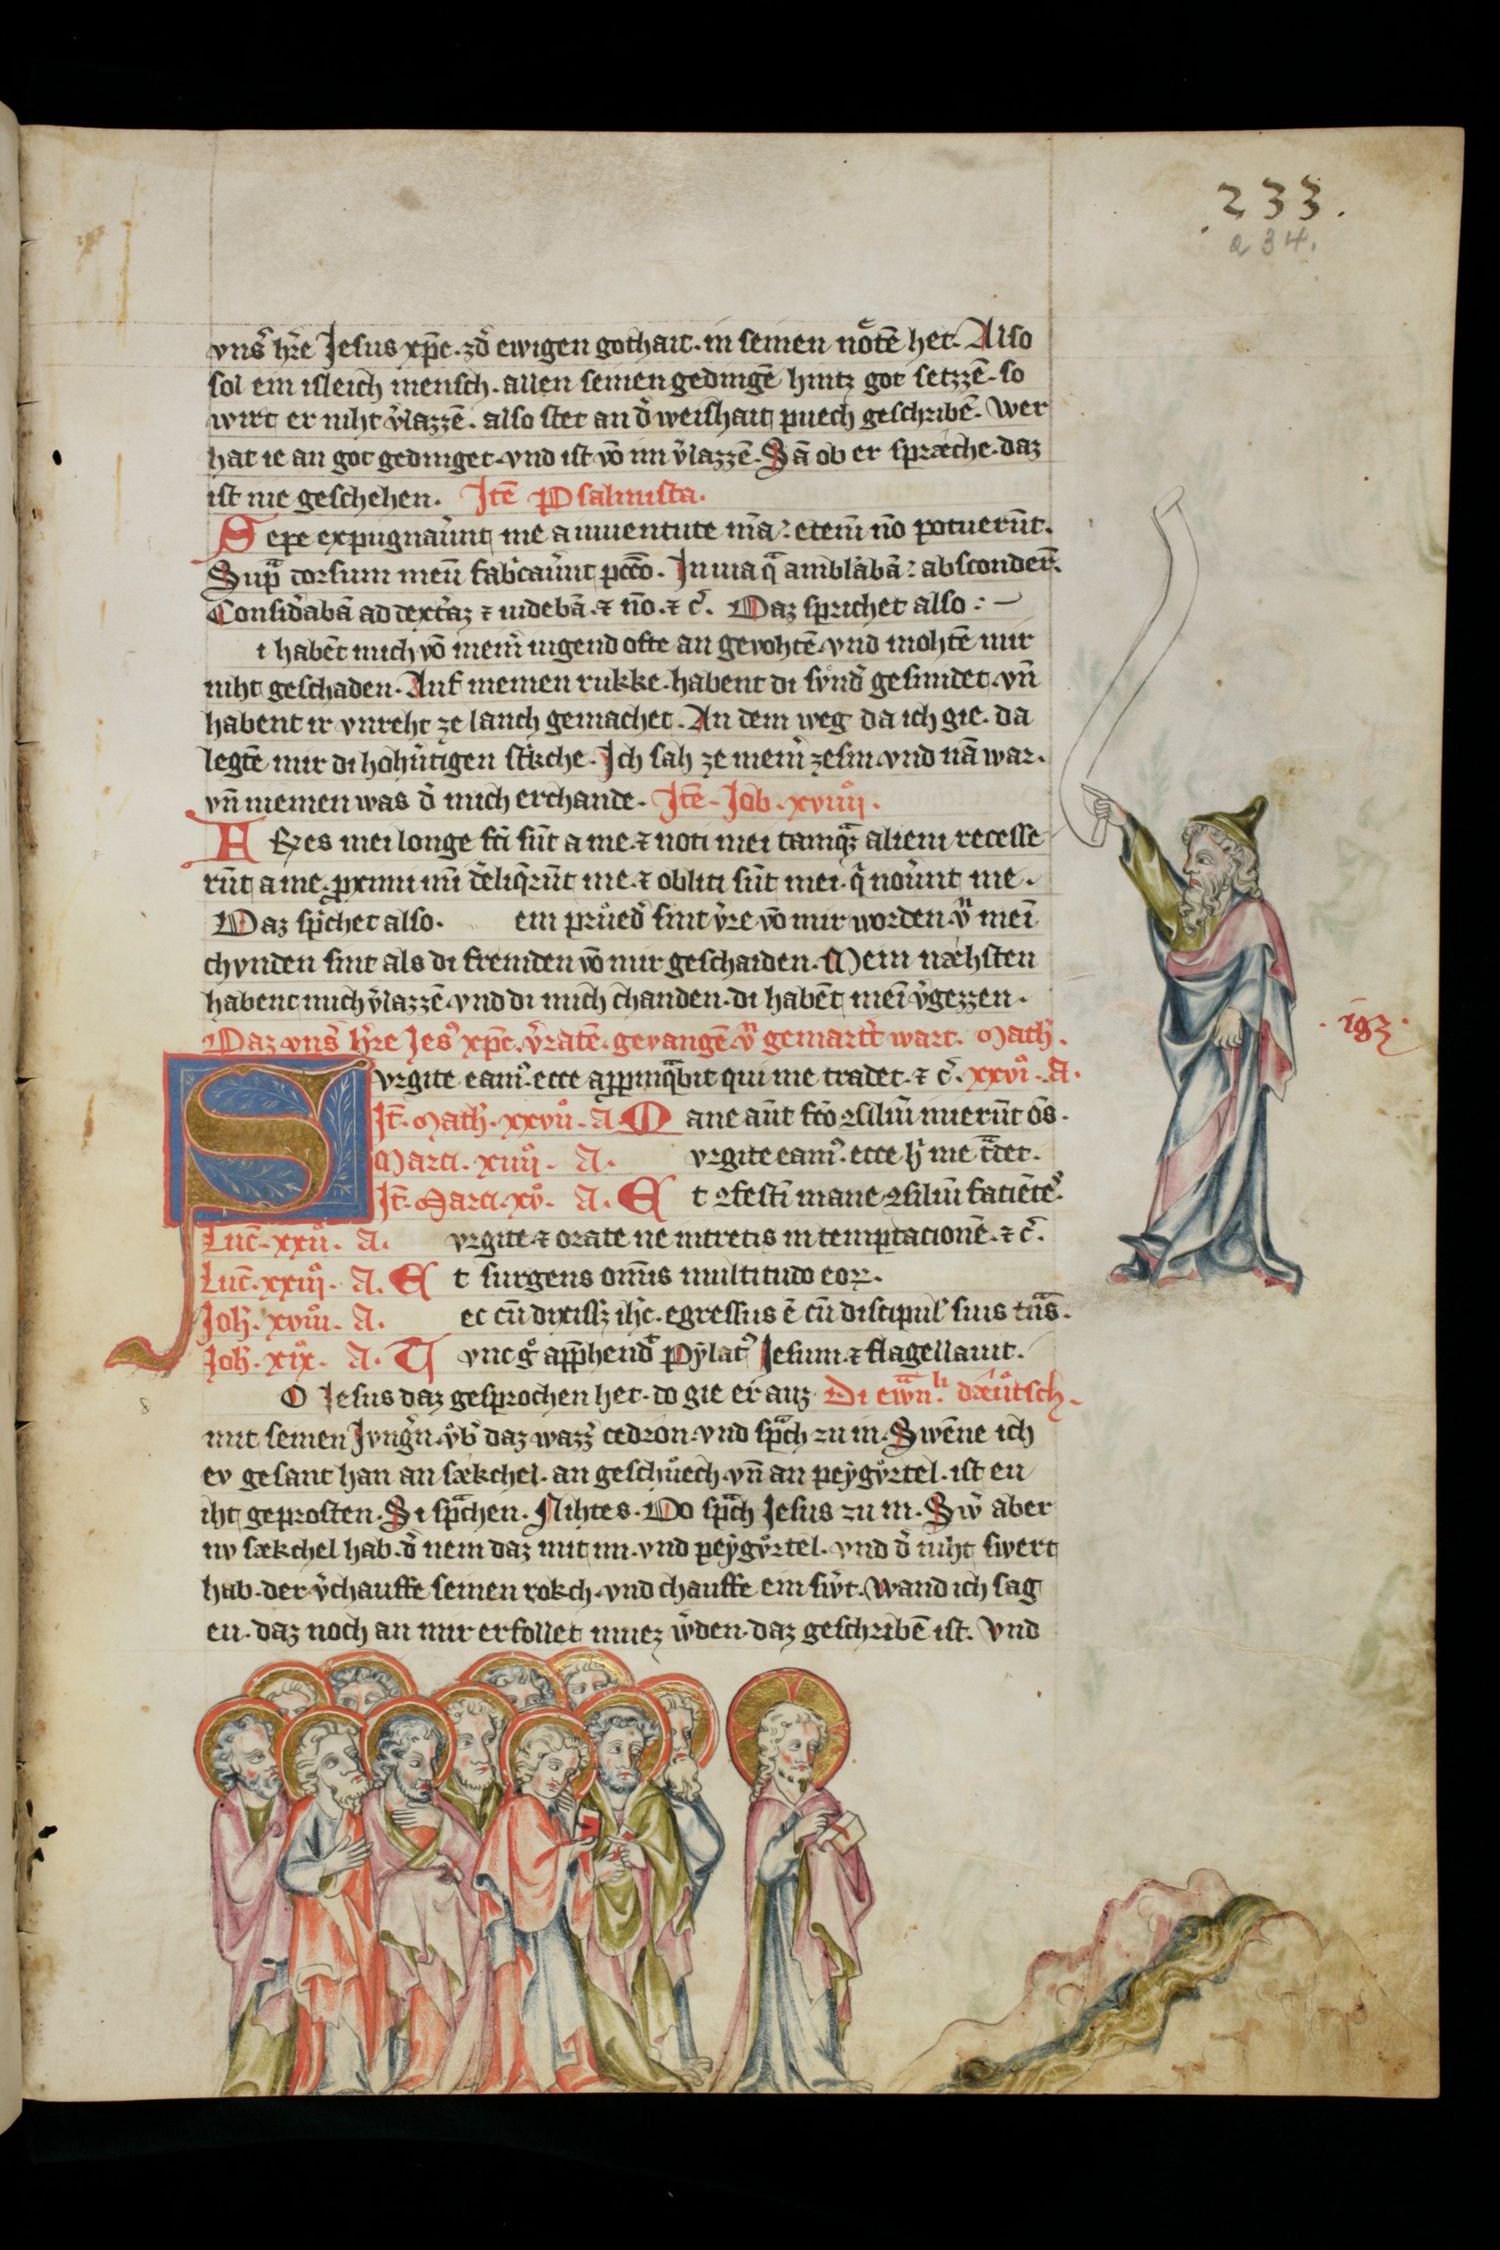 233.
234.
vnsˀ hˀre Jesus xp̄c. zd̾ ewigen gothait. in seinen nöte̅ het. Also
sol ein isleich mensch. allen seinen gedinge̅ hintz got setzze̅. so
wirt er niht v̾lazze̅. also stet an d̾ weishait puech geschribe̅. Wer
hat ie an got gedinget. vnd ist vo̅ im v̾lazze̅. Sa̅ ob er spræche. daz
ist nie geschehen. Ite̅ Psalmista.
Sepe expugnav̾unt me a iuuentute m̅a: etem̅ no̅ potueru̅t.
Supᵃ dorsum meu̅ fabˀcav̾unt pcc̅o. In uia qᵃ amblaba̅: absconder̅.
Considˀaba̅ ad dextˀaz ⁊ uideba̅. ⁊ no̅. ⁊ c̾. Daz sprichet also:
i habe̅t mich vo̅ mein̾ iugend ofte an gevohte̅. vnd mohte̅ mir
niht geschaden. Auf meinen rukke. habent di synd̾ gesmidet. vn̅
habent ir vnreht ze lanch gemachet. An dem weg da ich gie. da
legte̅ mir di hohv̾tigen stˀkche. Ich sah ze mein̾ zesm. vnd na̅ war.
vn̅ niemen was d̾ mich erchande. Ite̅. Job. xviiii.
Fres mei longe fc̅i su̅t a me. ⁊ noti mei tamqᵃz alieni recesse
ru̅t a me. p̱ximi mi̅ d̾eliq̾ru̅t me. ⁊ obliti su̅t mei. q̾ nov̾unt me.
Daz spˀchet also. ein průed̾ sint v̾re vo̅ mir worden. vn̅ mei̅
chvnden sint als di fremden vo̅ mir geschaiden. Mein næhsten
habent mich v̾lazze̅. vnd di mich chanden. di habe̅t mei̅ v̾gezzen.
Daz vnsˀ hˀre Jesꝰ xp̄c. v̾rate̅. gevange̅. vn̅ gemartˀt wart. Math̾.
Svrgite eamꝰ. ecce app̱inqᵃbit qui me tradet. ⁊ c̾. xxvi. A.
It̅. Math̾. xxvii. A. Mane au̅t fc̅o ꝯsiliu̅ inieru̅t o̅s.
Marci. xiiii. A. vrgite eamꝰ. ecce q̾ me tᵃdet.
It̅. Marci. xv. A. Et ꝯfesti̅ mane ꝯsiliu̅ facie̅teꝰ.
Luc̅. xxii. A. vrgite ⁊ orate ne intretis in temptacione̅. ⁊ c̾.
Luc̅. xxiii. A. Et surgens omn̅is multitudo eoꝝ.
Joh̾. xviii. A. ec cu̅ dixissꝫ ih̅c. egressus e̅ cu̅ discipulˀ suis tᵃns.
Joh̾. xix. A. Tvnc gͦ app̱hendˀ Pylatꝰ Jesum ⁊ flagellauit.
O Jesus daz gesprochen het. do gie er auz Di ewᵃn̅. dæůtsch.
mit seinen Jvngˀn. vͦbˀ daz wazzˀ cedron. vnd spᵃch zu in. Swe̅ne ich
ev gesant han an sækchel. an geschůech. vn̅ an peygvͦrtel. ist eu
iht geprosten. Si spᵃchen. Nihtes. Do spᵃch Jesus zu in. Sw̾ aber
nv sækchel hab. d̾ nem daz mit im. vnd peygvͦrtel. vnd d̾ niht swert
hab. der v̾chauffe seinen rokch. vnd chauffe ein sw̾t. Wand ich sag
eu. daz noch an mir erfollet muez w̾den. daz geschribe̅ ist. Vnd